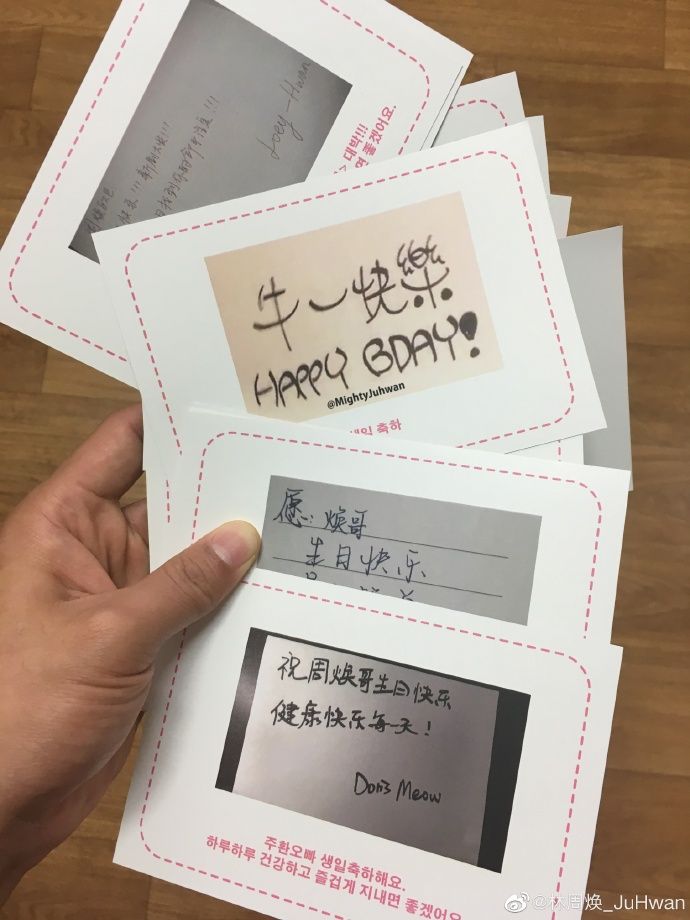 快乐!!!新剧大发!!!
Joey-Hwan
대박!!!
면 좋겠어요.
牛一快樂
HAPPY BDAY!
@MightyJuhwan
생일 축하
愿:焕哥
生日快乐
祝周焕哥生日快乐
健康快乐每一天!
Doris Meow
주환오빠 생일축하해요.
하루하루 건강하고 즐겁게 지내면 좋겠어요
@林周焕_JuHwan